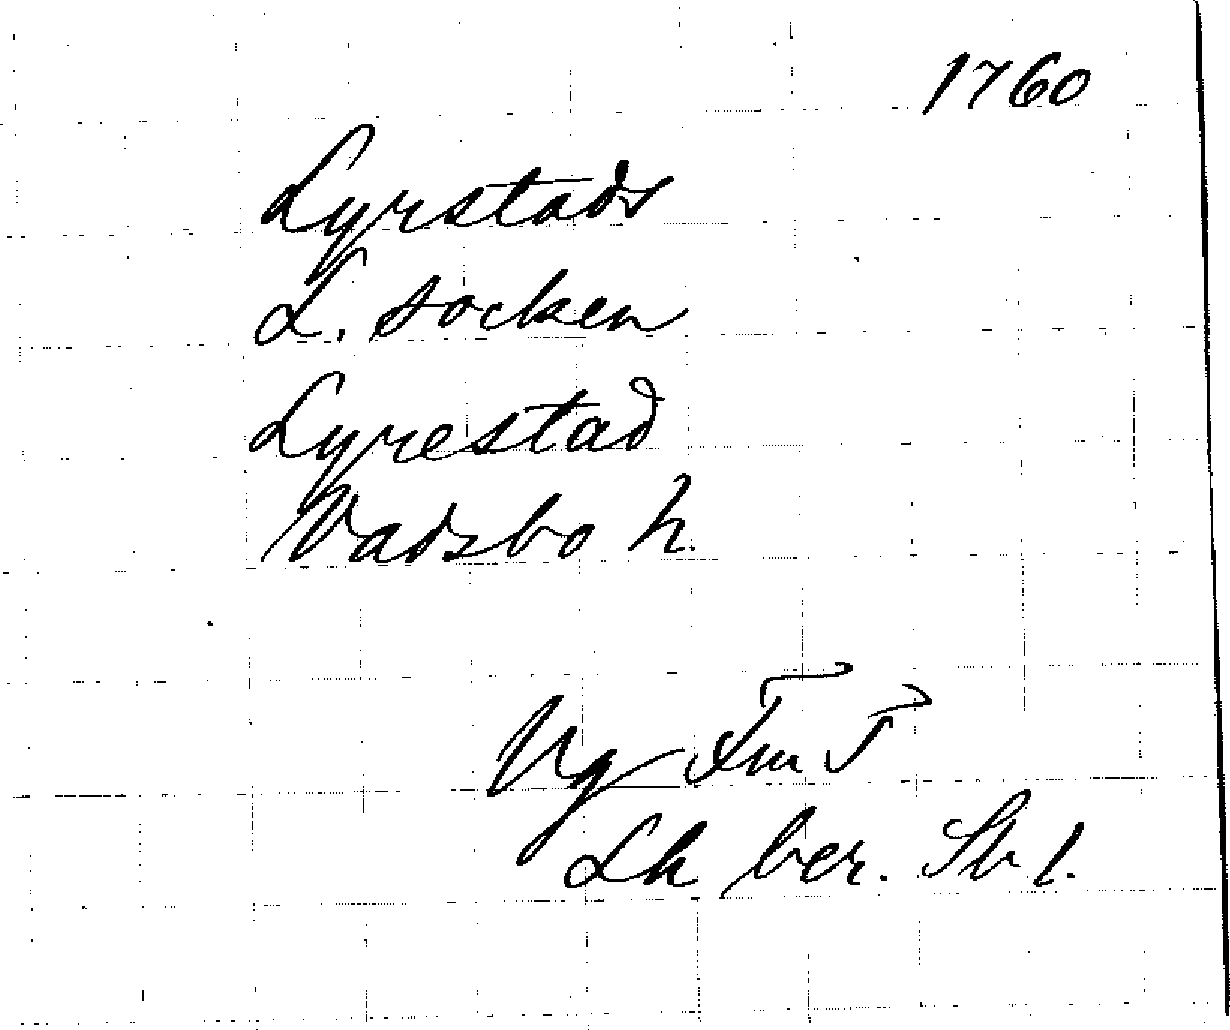 1760
Lyrstads
L. socken
Lyrestad
Vadsbo h.
Vg Fm T
Lk ber. Sk 1.